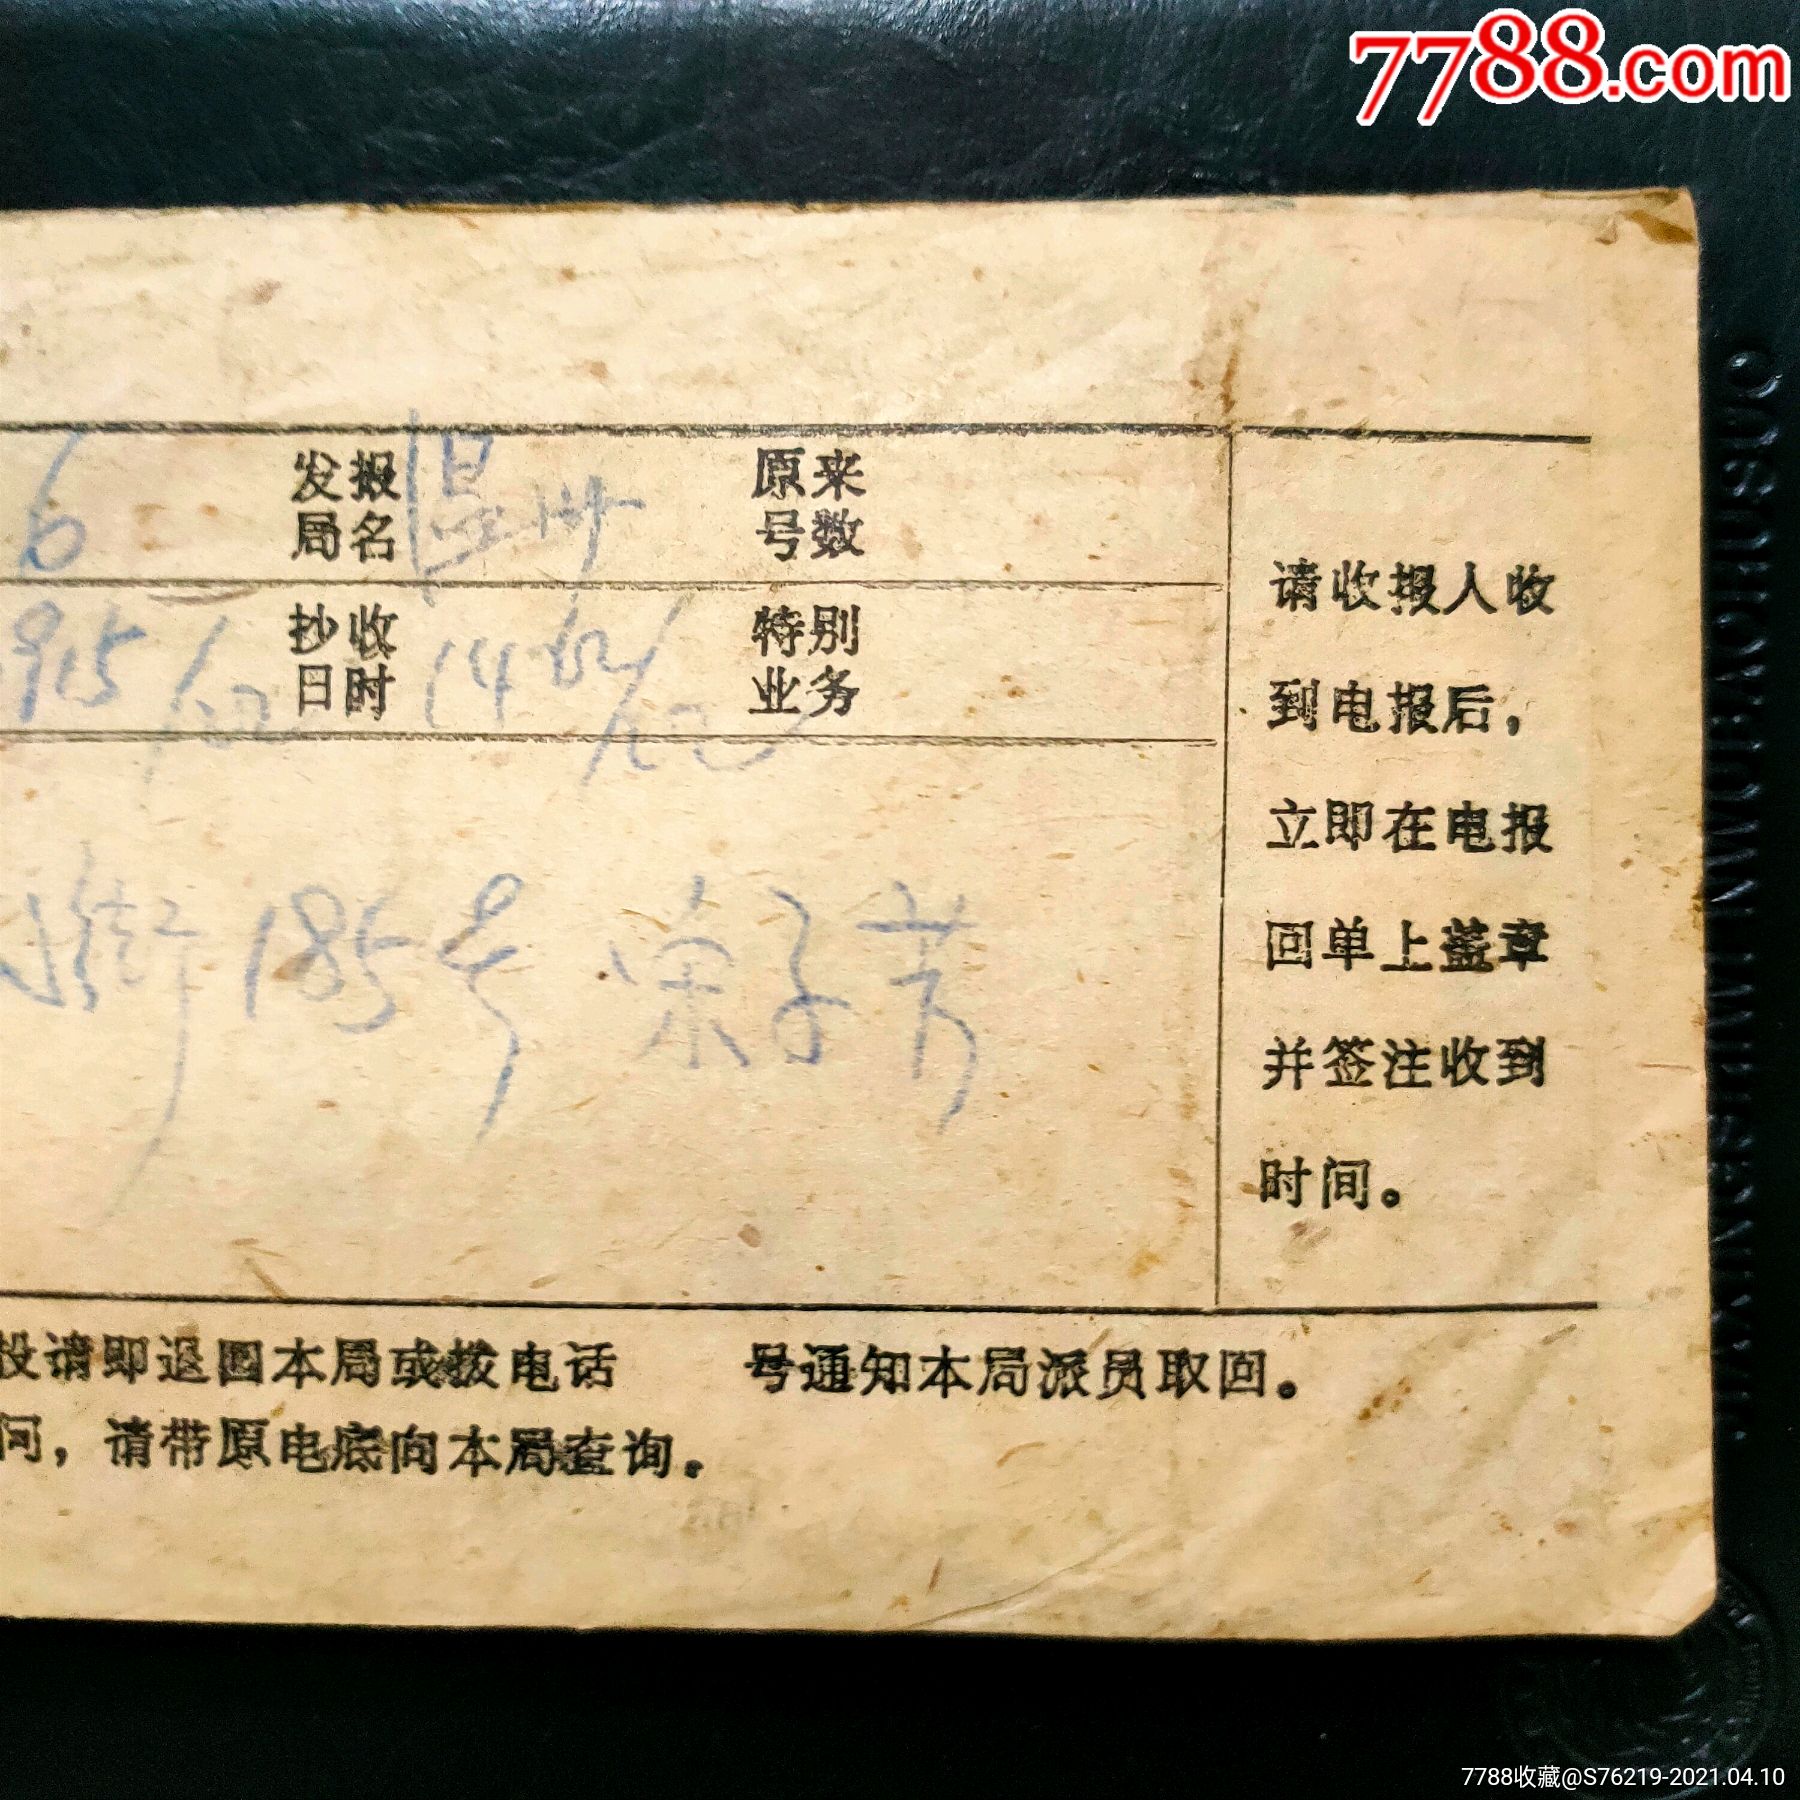 7788.com
6 发报局名 温州 原来号数
915/ 抄收日时 14 特别业务
街185号 宋子芳
请收报人收
到电报后，
立即在电报
回单上盖章
并签注收到
时间。
投请即退回本局或拨电话 号通知本局派员取回。
问，请带原电底向本局查询。
7788收藏@S76219-2021.04.10